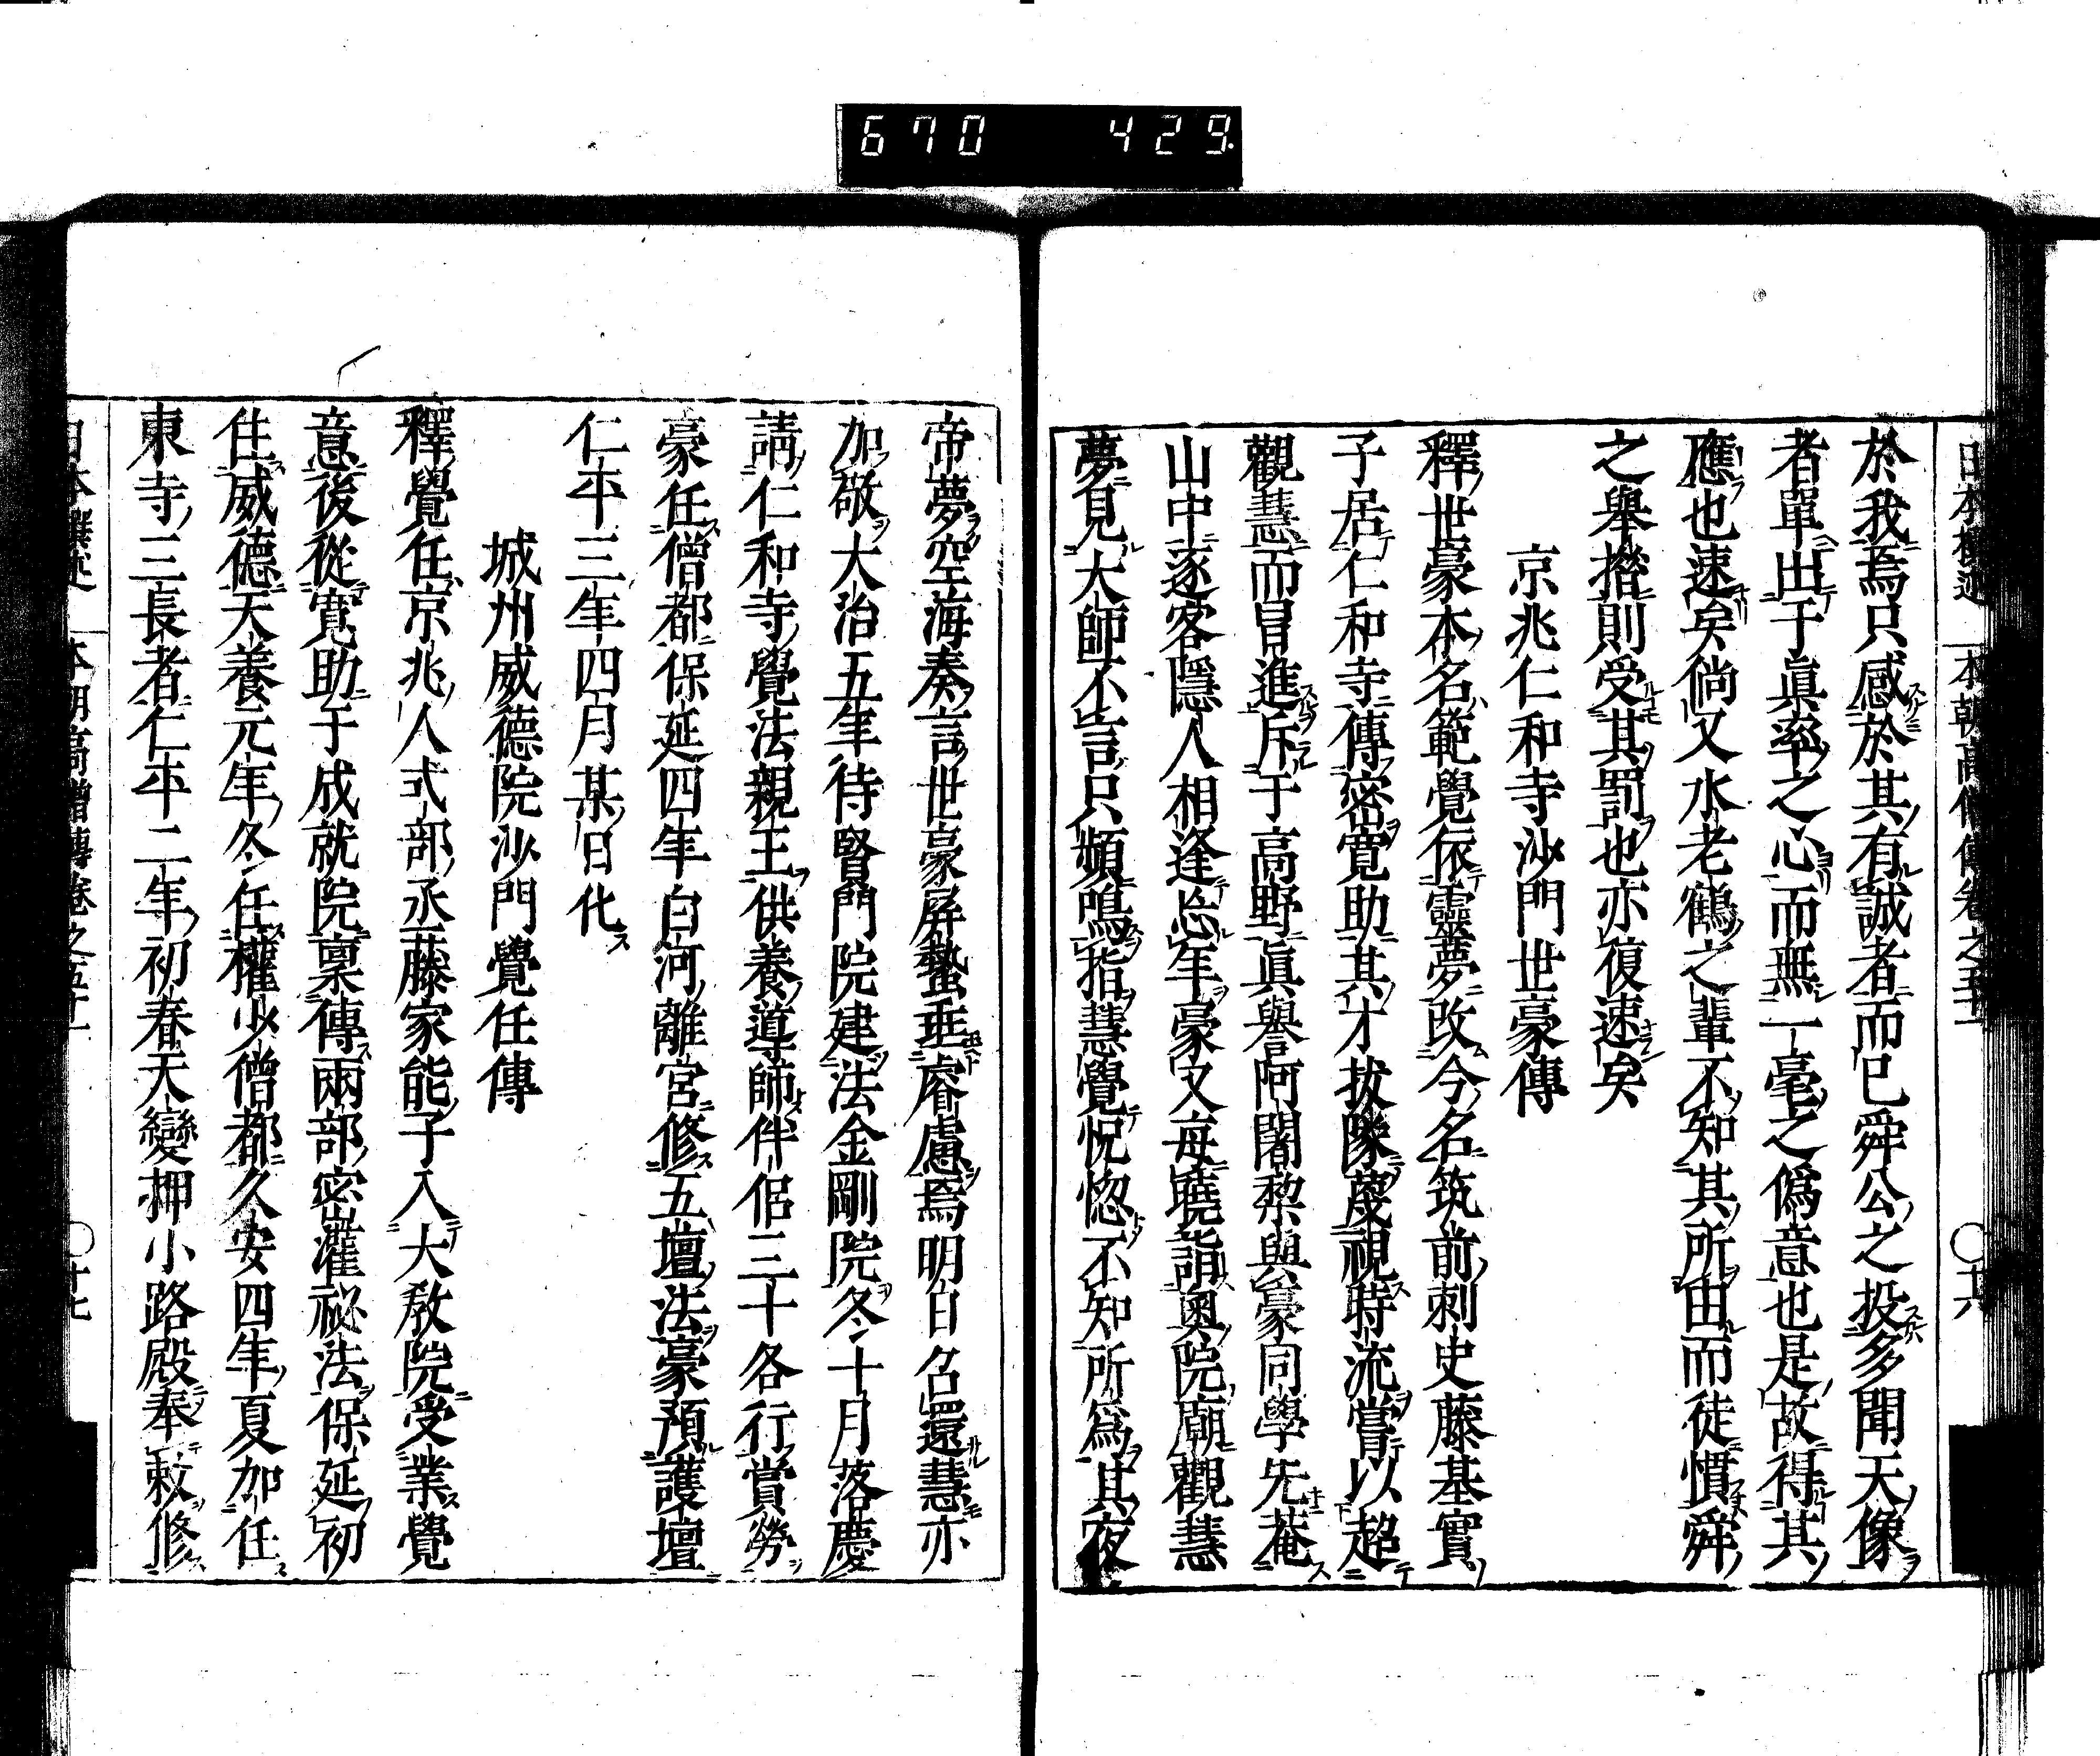 670 429
日本撰述 本朝高僧傳卷之五十一 〇十六
於我焉只感於其有誠者而已舜公之投多聞天像
者單出于眞率之心而無一毫之僞意也是故得其
應也速矣倘又水老鶴之輩不知其所由而徒慣舜
之舉措則受其罰也亦復速矣
京兆仁和寺沙門世豪傳
釋世豪本名範覺依靈夢改今名筑前刺史藤基實
子居仁和寺傳密寬助其才拔隊蔑視時流嘗以超
觀慧而冒進斥于高野眞譽阿闍梨與豪同學先菴
山中逐客隱人相逢忘年豪又每曉詣奧院廟觀慧
夢見大師不言只頻鳴指慧覺怳惚不知所爲其夜
帝夢空海奏言世豪屏蟄垂睿慮焉明日召還慧亦
加敬大治五年待賢門院建法金剛院冬十月落慶
請仁和寺覺法親王供養導師伴侶三十各行賞勞
豪任僧都保延四年白河離宮修五壇法豪預護壇
仁平三年四月某日化
城州威德院沙門覺任傳
釋覺任京兆人式部丞藤家能子入大敎院受業覺
意後從寬助于成就院稟傳兩部密灌祕法保延初
住威德天養元年冬任權少僧都久安四年夏加任
東寺三長者仁平二年初春天變押小路殿奉敕修
日本撰述 本朝高僧傳卷之五十一 〇十七